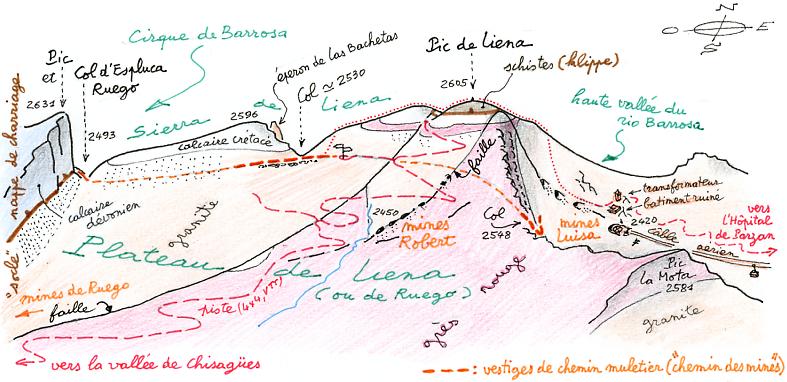 Cirque de Barrosa
Pic
et
Col d'Espluca
Ruego
2631
2493
éperon de las Bachetas
Col ≃ 2530
Pic de Liena
2605
schistes (klippe)
N
O
E
S
haute vallée du
rio Barrosa
Sierra de Liena
2596
calcaire crétacé
"sole" nappe de charriage
calcaire
dévonien
granite
faille
transformateur
batiment ruiné
2420
câble
aérien
vers
l'Hôpital
de Parzan
2450
mines
Robert
Col
2548
mines
Luisa
Plateau de Liena
(ou de Ruego)
Pic
la Mota
2581
granite
mines de Ruego
faille
piste (4x4, VTT)
grès rouge
vers la vallée de Chisagües
: vestiges de chemin muletier ("chemin des mines")